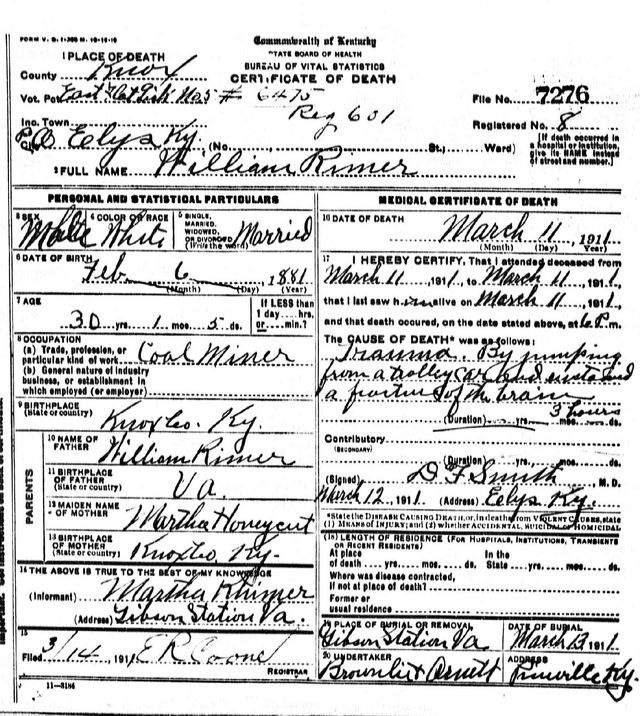 FORM V. S. 1-
Commonwealth of Kentucky
STATE BOARD OF HEALTH
BUREAU OF VITAL STATISTICS
CERTIFICATE OF DEATH
1 PLACE OF DEATH
County Knox
Vot. Pct. East Flat Lick No 5 # 6475
File No. 7276
Inc. Town Reg 601
Registered No. 8
P.O. Eelys Ky. (No. St., Ward)
[If death occurred in a hospital or institution, give its NAME instead of street and number.]
2 FULL NAME William Rimer
PERSONAL AND STATISTICAL PARTICULARS
3 SEX Male
4 COLOR OR RACE White
5 SINGLE, MARRIED, WIDOWED, OR DIVORCED (Write the word) Married
6 DATE OF BIRTH
Feb 6 1881
(Month) (Day) (Year)
7 AGE
30 yrs. 1 mos. 5 ds.
If LESS than 1 day hrs. or min.?
8 OCCUPATION
(a) Trade, profession, or particular kind of work Coal Miner
(b) General nature of industry
business, or establishment in
which employed (or employer)
9 BIRTHPLACE
(State or country) Knox Co. Ky.
PARENTS
10 NAME OF FATHER William Rimer
11 BIRTHPLACE OF FATHER (State or country) Va.
12 MAIDEN NAME OF MOTHER Martha Honeycut
13 BIRTHPLACE OF MOTHER (State or country) Knox Co. Ky.
14 THE ABOVE IS TRUE TO THE BEST OF MY KNOWLEDGE
(Informant) Martha Rhimer
(Address) Gibson Station Va.
15
Filed 3/14 1911 E R
REGISTRAR
11-3184
MEDICAL CERTIFICATE OF DEATH
16 DATE OF DEATH
March 11, 1911
(Month) (Day) (Year)
17 I HEREBY CERTIFY, That I attended deceased from
March 11 1911, to March 11, 1911,
that I last saw him alive on March 11, 1911,
and that death occured, on the date stated above, at 6 P m.
The CAUSE OF DEATH* was as follows:
Trauma. By jumping
from a trolley car and
a of the brain
3 hours
(Duration) yrs. mos. ds.
Contributory
(SECONDARY)
(Duration) yrs. mos. ds.
(Signed) D F Smith M. D.
March 12, 1911 (Address) Eelys Ky.
*State the DISEASE CAUSING DEATH, or, in deaths from VIOLENT CAUSES, state
(1) MEANS OF INJURY; and (2) whether ACCIDENTAL, SUICIDAL OR HOMICIDAL
(18) LENGTH OF RESIDENCE (FOR HOSPITALS, INSTITUTIONS, TRANSIENTS
OR RECENT RESIDENTS)
At place of death yrs. mos. ds. In the State yrs. mos. ds.
Where was disease contracted,
if not at place of death?
Former or
usual residence
19 PLACE OF BURIAL OR REMOVAL Gibson Station Va
DATE OF BURIAL March 13, 1911
20 UNDERTAKER Brownlie & Arnett
ADDRESS Pineville Ky.